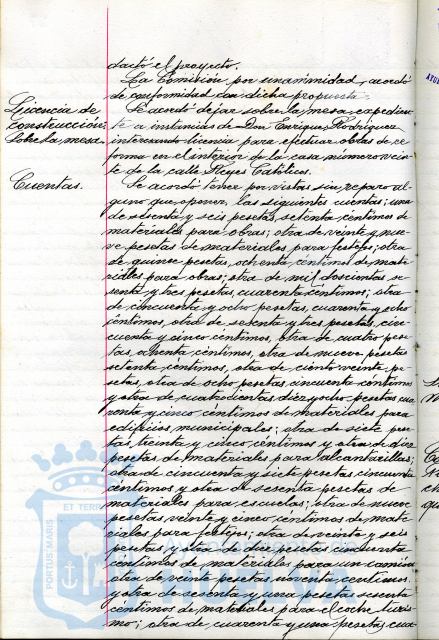 dactó el proyecto.
La Comisión por unanimidad, acordó
de conformidad con dicha propuesta.
Licencia de
construcción.
Sobre la mesa.
Se acordó dejar sobre la mesa expedien-
te a instancias de Don Enrique Rodríguez
interesando licencia para efectuar obras de re-
forma en el interior de la casa número vein-
te de la calle Reyes Católicos.
Cuentas.
Se acordó tener por vistas sin reparo al-
guno que oponer, las siguientes cuentas; una
de sesenta y seis pesetas, setenta céntimos de
materiales para obras; otra de veinte y nue-
ve pesetas de materiales para festejos; otra
de quince pesetas, ochenta céntimos de mate-
riales para obras; otra de mil doscientas se-
senta y tres pesetas, cuarenta céntimos; otra
de cincuenta y ocho pesetas, cuarenta y ocho
céntimos, otra de sesenta y tres pesetas, cin-
cuenta y cinco céntimos, otra de cuatro pese-
tas, ochenta céntimos, otra de nueve pesetas
setenta céntimos, otra de ciento veinte pe-
setas, otra de ocho pesetas cincuenta céntimos
y otra de cuatrocientas diez y ocho pesetas cua-
renta y cinco céntimos de materiales para
edificios municipales; otra de siete pese-
tas, treinta y cinco céntimos y otra de diez
pesetas de materiales para alcantarillas;
otra de cincuenta y siete pesetas, cincuenta
céntimos y otra de sesenta pesetas de
materiales para escuelas; otra de nueve
pesetas, veinte y cinco céntimos de mate-
riales para festejos; otra de veinte y seis
pesetas y otra de diez pesetas cincuenta
céntimos de materiales para un camión
otra de veinte pesetas noventa céntimos
y otra de sesenta y una pesetas sesenta
céntimos de materiales para el coche turis-
mo; otra de cuarenta y una pesetas, cua-
PORTUS MARIS
ET TERR